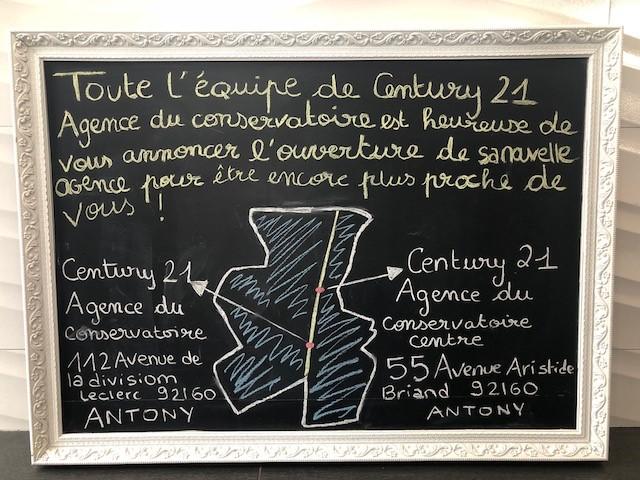 Toute l'équipe de Century 21
Agence du conservatoire est heureuse de
vous annoncer l'ouverture de sa nouvelle
agence pour être encore plus proche de
vous !
Century 21
Agence du
Conservatoire
112 Avenue de
la division
Leclerc 92160
ANTONY
Century 21
Agence du
Conservatoire
centre
55 Avenue Aristide
Briand 92160
ANTONY